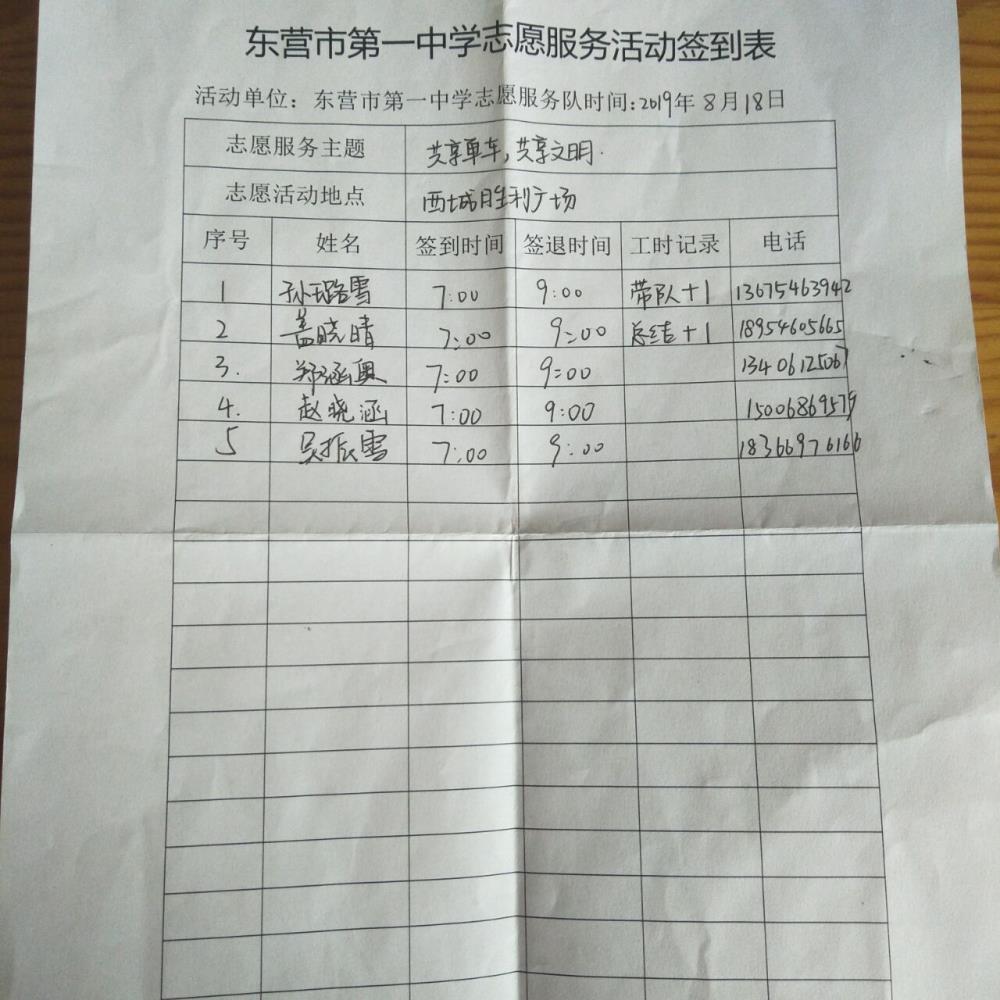 东营市第一中学志愿服务活动签到表
活动单位：东营市第一中学志愿服务队时间:2019年8月18日
志愿服务主题 共享单车,共享文明.
志愿活动地点 西城胜利广场
序号 姓名 签到时间 签退时间 工时记录 电话
1 孙璐雪 7:00 9:00 带队+1 13675463942
2 盖晓晴 7:00 9:00 总结+1 18954605665
3. 郑涵奥 7:00 9:00 13406125067
4. 赵晓涵 7:00 9:00 15006869579
5 吴振雪 7:00 9:00 18366976166